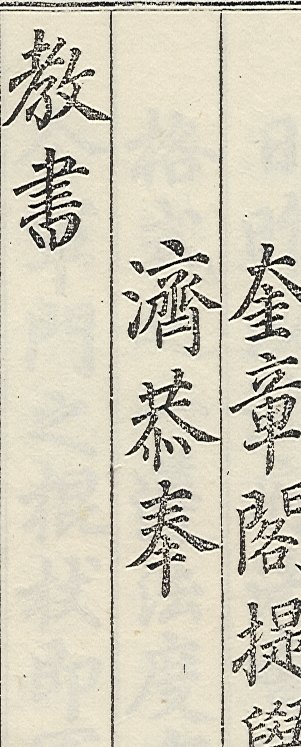 奎章閣提學
濟恭奉
教書